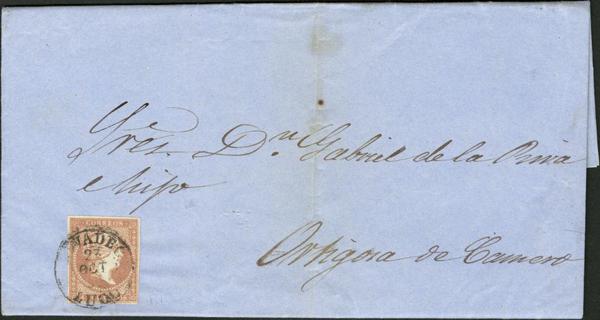 Sres. Dn. Gabriel de la Riva
e hijo
Ortigosa de Camero
CORREOS
NADE
OCT
LUGO